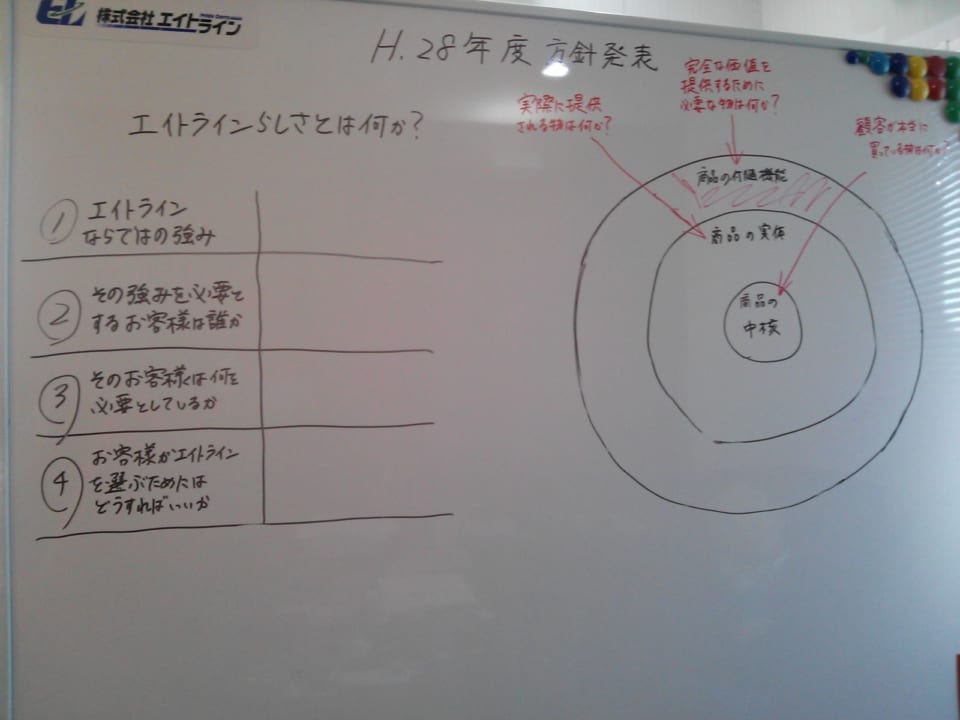 株式会社 エイトライン
H.28年度 方針発表
エイトラインらしさとは何か?
① エイトライン
ならではの強み
② その強みを必要と
するお客様は誰か
③ そのお客様は何を
必要としているか
④ お客様がエイトライン
を選ぶためには
どうすればいいか
実際に提供
される物は何か?
完全な価値を
提供するために
必要な物は何か?
顧客が本当に
買っている物は何か?
商品の付随機能
商品の実体
商品の
中核